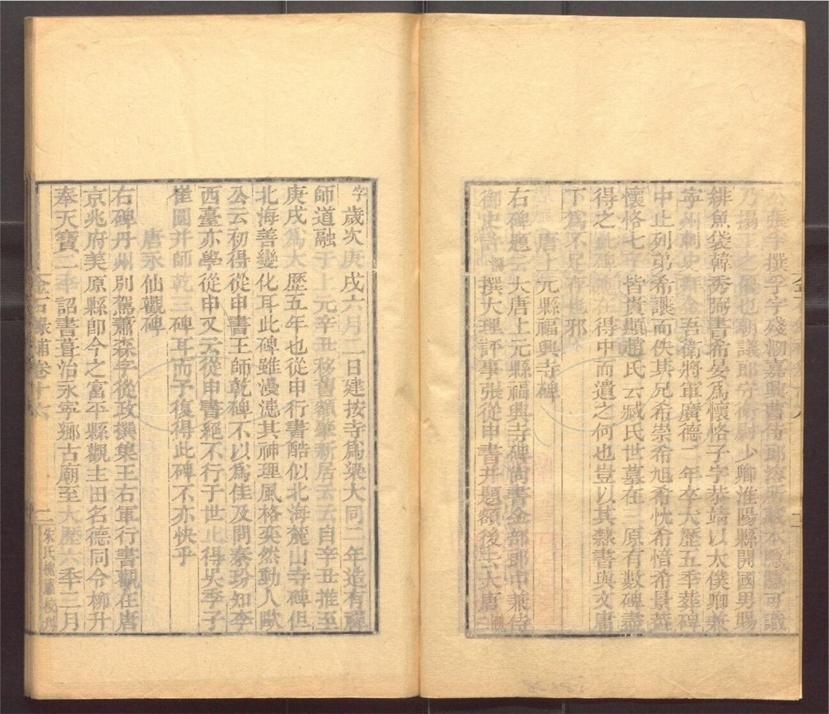 公集字撰字字殘泐嘉興書
乃揚 之 也朝議郎守衛尉少卿淮陽縣開國男賜
緋魚袋韓秀弼書希晏為懷恪子字恭靖以太僕卿兼
寧州刺史 金吾衛將軍廣德 年卒大歷五季葬碑
中止列弟希讓而佚其兄希崇希昶希忱希愔希景蓋
懷恪七子皆貴顯趙氏云臧氏世墓在三原有數碑盡
得之 得中而遺之何也豈以其隸書與文庸
下為不足存也邪
唐上元縣福興寺碑
右碑題云大唐上元縣福興寺碑尚書金部郎中兼侍
御史許 撰大理評事張從申書并題額後云大唐
字歲次庚戌六月二日建按寺為梁大同二年造有禪
師道融于上元辛丑移舊額肇新居云云自辛丑推至
庚戌為大歷五年也從申行書酷似北海麓山寺碑但
北海善變化耳此碑雖漫漶其神理風格奕然動人歐
公云初得從申書王師乾碑不以為佳及問秦玢知李
西臺亦學從申又云從申書絕不行于世止得吳季子
崔圓并師乾三碑耳而予復得此碑不亦快乎
唐永仙觀碑
右碑丹州別駕蕭森字從政撰集王右軍行書觀在唐
京兆府美原縣即今之富平縣觀主田名德同令柳升
奉天寶二季詔書葺治永寧鄉古廟至大歷六季三月
金石錄補卷十六
二
朱氏槐廬校刊